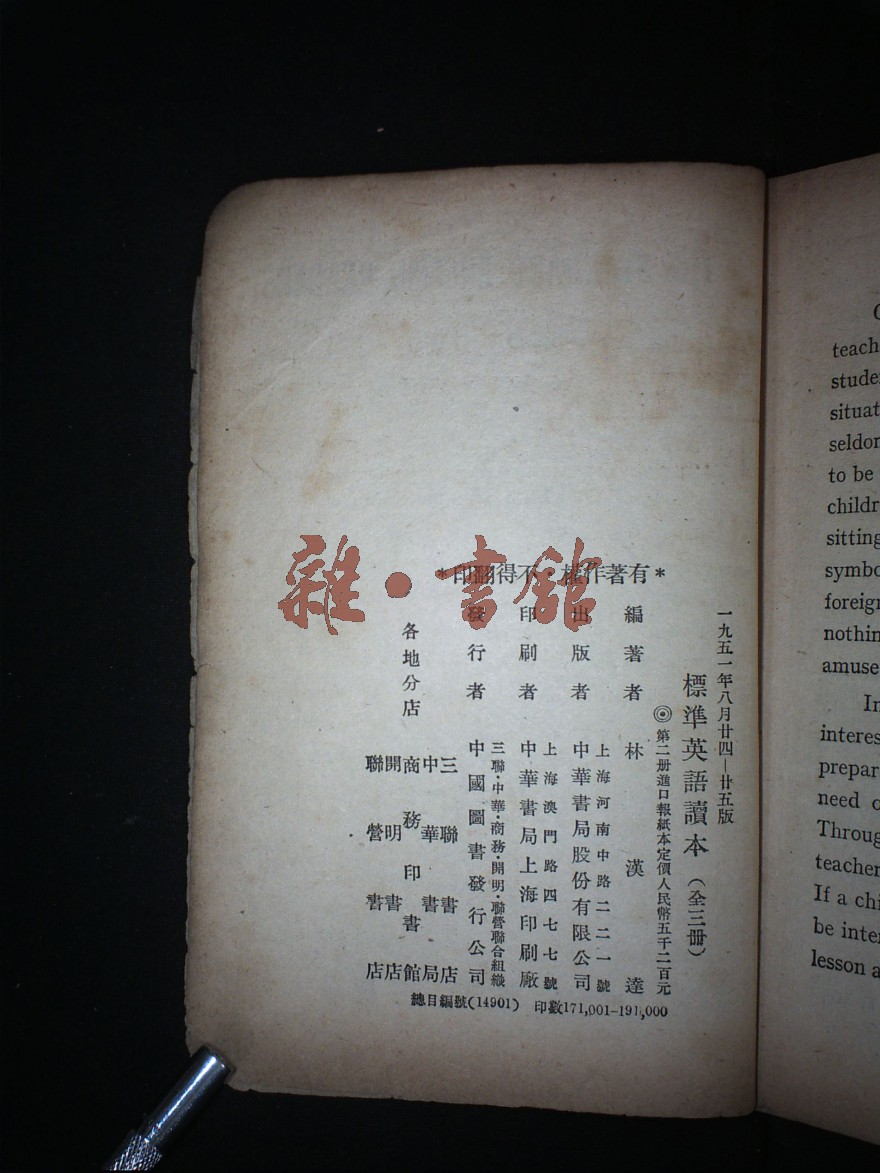 *有著作權·不得翻印*
一九五一年八月廿四—廿五版
標準英語讀本(全三冊)
◎第二册進口報紙本定價人民幣五千二百元
編著者 林漢達
上海河南中路二二一號
出版者 中華書局股份有限公司
上海澳門路四七七號
印刷者 中華書局上海印刷廠
三聯·中華·商務·開明·聯營聯合組織
發行者 中國圖書發行公司
各地分店
三聯書店
中華書局
商務印書館
開明書店
聯營書店
總目編號(14901) 印數171,001—191,000
雜·書館
teach
situat
to be
sitting
nothin
amuse
In
interes
need o
Throug
teacher
If a chi
be inte
lesson a